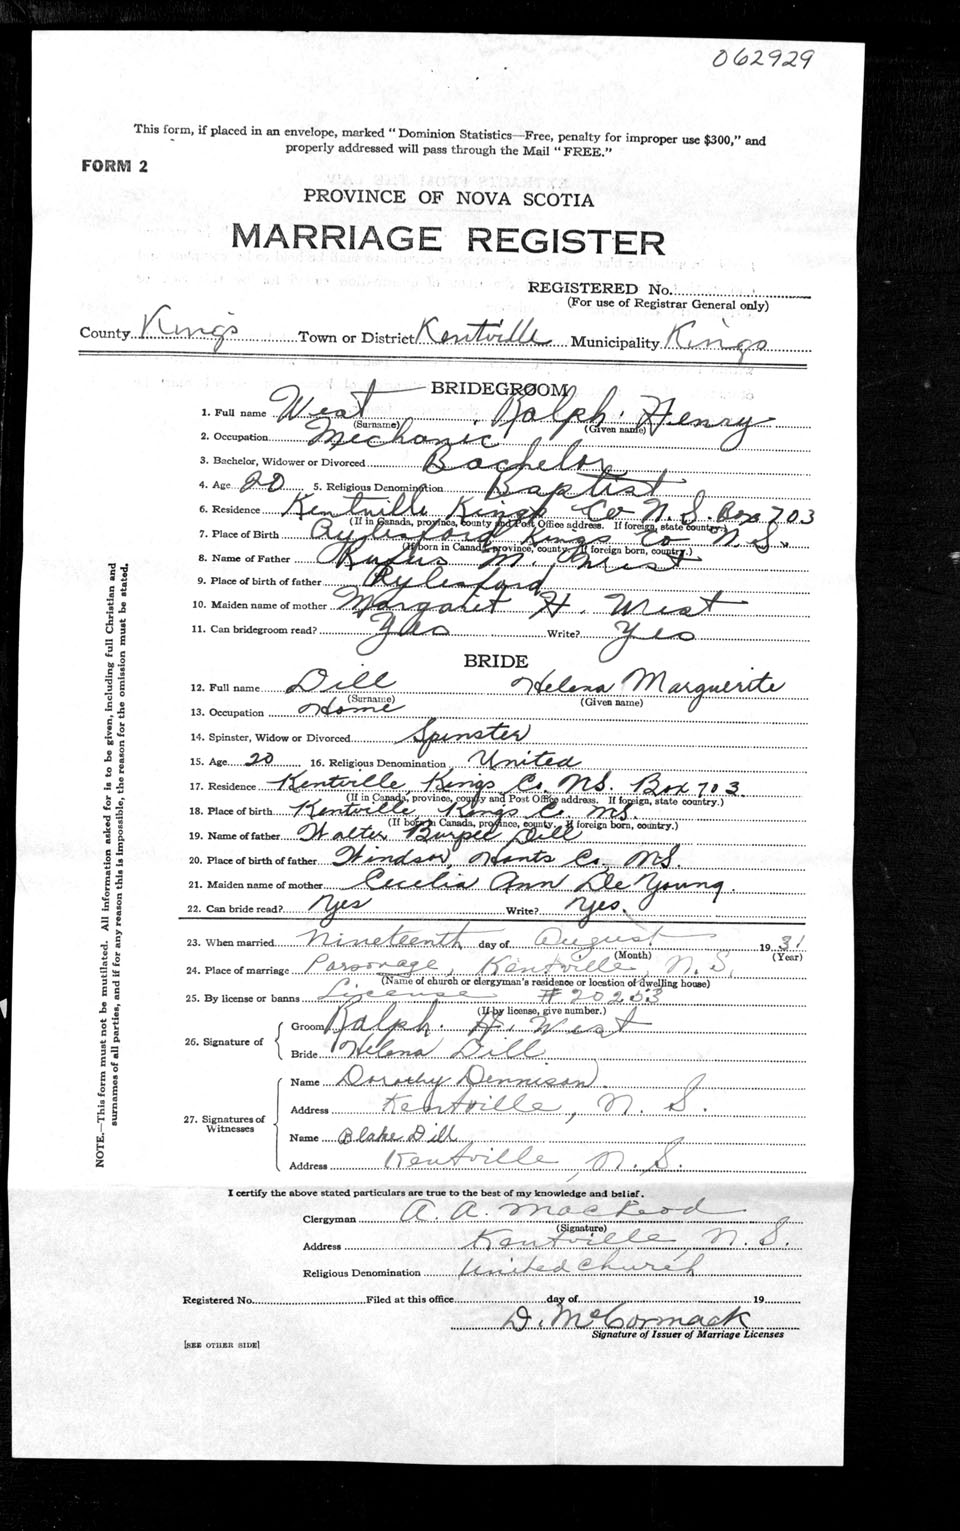 062929
This form, if placed in an envelope, marked "Dominion Statistics—Free, penalty for improper use $300," and
properly addressed will pass through the Mail "FREE."
FORM 2
PROVINCE OF NOVA SCOTIA
MARRIAGE REGISTER
REGISTERED No.
(For use of Registrar General only)
County Kings Town or District Kentville Municipality Kings
BRIDEGROOM
1. Full name West Ralph Henry
(Surname) (Given name)
2. Occupation Mechanic
3. Bachelor, Widower or Divorced Bachelor
4. Age 20 5. Religious Denomination Baptist
6. Residence Kentville Kings Co N.S. Box 703
(If in Canada, province, county and Post Office address. If foreign, state country.)
7. Place of Birth Aylesford Kings Co N.S.
(If born in Canada, province, county. If foreign born, country.)
8. Name of Father Rufus M. West
9. Place of birth of father Aylesford
10. Maiden name of mother Margaret H. West
11. Can bridegroom read? Yes Write? Yes
BRIDE
12. Full name Dill Helena Marguerite
(Surname) (Given name)
13. Occupation Home
14. Spinster, Widow or Divorced Spinster
15. Age 20 16. Religious Denomination United
17. Residence Kentville, Kings Co. N.S. Box 703.
(If in Canada, province, county and Post Office address. If foreign, state country.)
18. Place of birth Kentville Kings C. N.S.
(If born in Canada, province, county. If foreign born, country.)
19. Name of father Walter Burpee Dill
20. Place of birth of father Windsor, Hants Co. N.S.
21. Maiden name of mother Cecelia Ann De Young.
22. Can bride read? Yes Write? Yes.
23. When married Nineteenth day of August 1931
(Month) (Year)
24. Place of marriage Parsonage, Kentville, N.S.
(Name of church or clergyman's residence or location of dwelling house)
25. By license or banns License #20253
(If by license, give number.)
26. Signature of
Groom Ralph. H. West
Bride Helena Dill
27. Signatures of Witnesses
Name Dorothy Dennison.
Address Kentville, N.S.
Name Blake Dill
Address Kentville, N.S.
I certify the above stated particulars are true to the best of my knowledge and belief.
Clergyman A. A. MacLeod
(Signature)
Address Kentville, N.S.
Religious Denomination United Church
Registered No. Filed at this office day of 19
D. McCormack
Signature of Issuer of Marriage Licenses
[SEE OTHER SIDE]
NOTE.—This form must not be mutilated. All information asked for is to be given, including full Christian and
surnames of all parties, and if for any reason this is impossible, the reason for the omission must be stated.